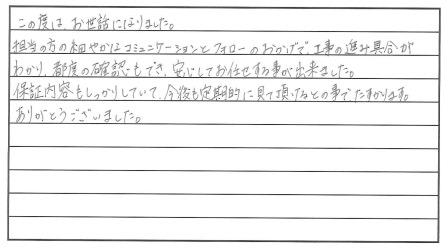 この度は、お世話になりました。
担当の方の細やかなコミュニケーションとフォローのおかげで、工事の進み具合が
わかり、都度の確認もでき、安心してお任せする事が出来ました。
保証内容もしっかりしていて、今後も定期的に見て頂けるとの事でたすかります。
ありがとうございました。